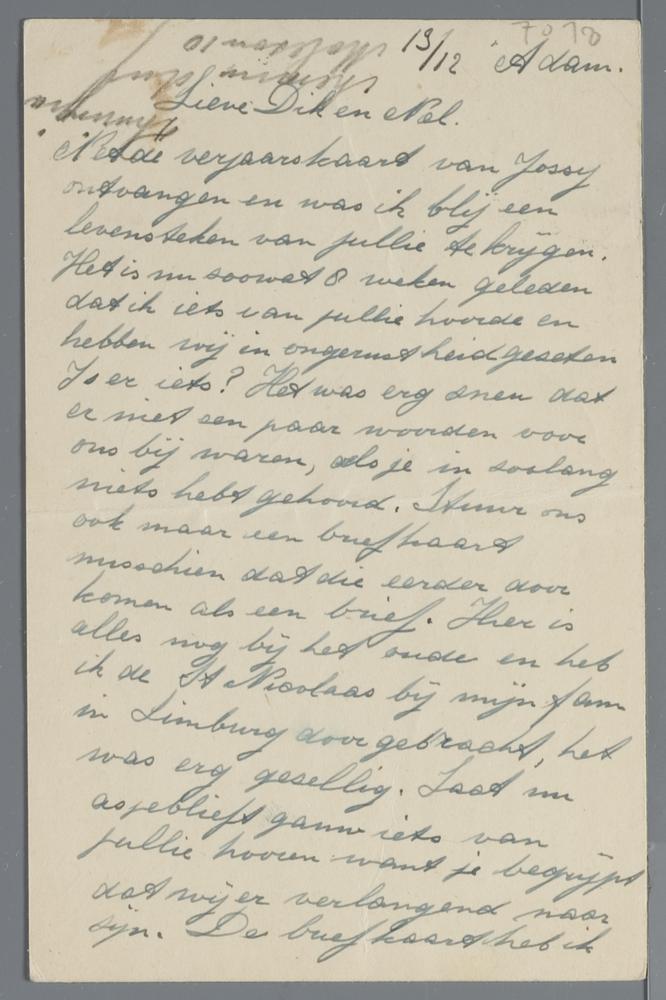 7070
13/12 A'dam.
Lieve Dik en Nel.
Net de verjaarskaart van Jossy
ontvangen en was ik blij een
levensteken van jullie te krijgen.
Het is nu soowat 8 weken geleden
dat ik iets van jullie hoorde en
hebben wij in ongerustheid geseten
Is er iets? Het was erg sneu dat
er niet een paar woorden voor
ons bij waren, als je in soolang
niets hebt gehoord. Stuur ons
ook maar een briefkaart
misschien dat die eerder door
komen als een brief. Hier is
alles nog bij het oude en heb
ik de St Nicolaas bij mijn fam
in Limburg doorgebracht, het
was erg gesellig. Laat nu
asjeblieft gauw iets van
jullie hooren want je begrijpt
dat wij er verlangend naar
sijn. De briefkaart heb ik